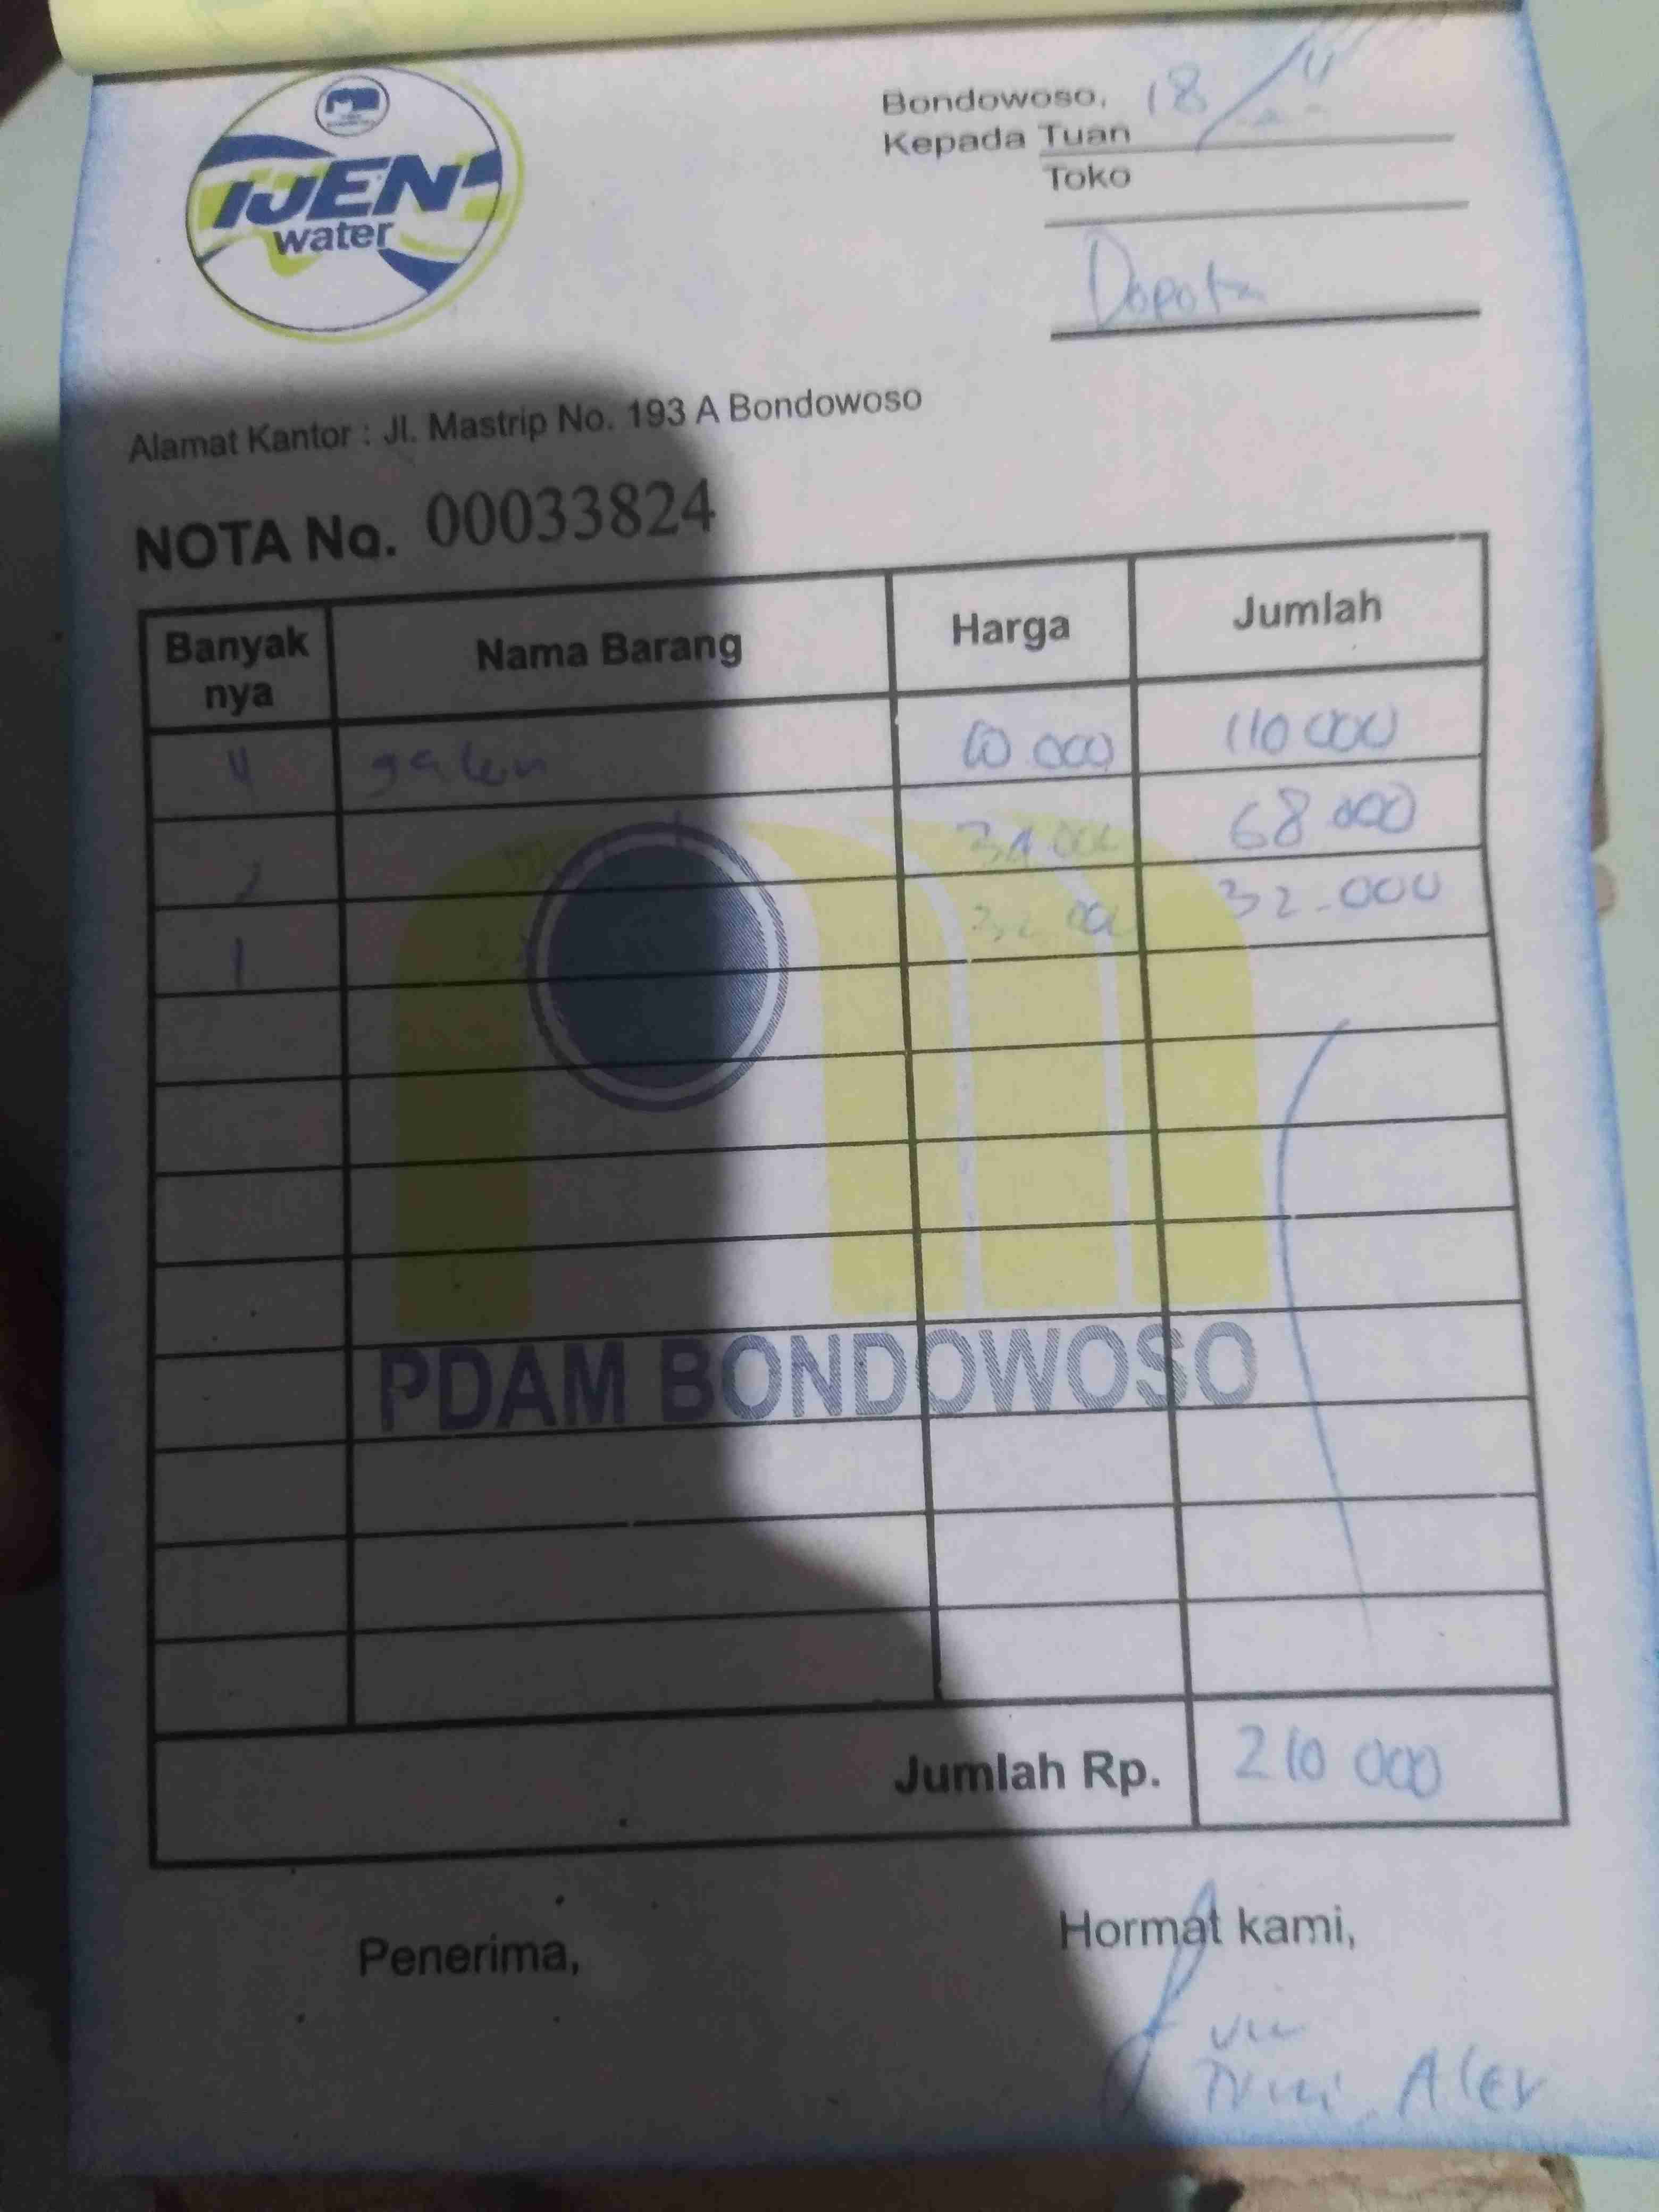 IJEN
water
Bondowoso, 18/11
Kepada Tuan
Toko
Alamat Kantor : Jl. Mastrip No. 193 A Bondowoso
NOTA No. 00033824
Banyak nya Nama Barang Harga Jumlah
galon 10 000 110 000
2 34 000 68 000
1 32 000 32.000
PDAM BONDOWOSO
Jumlah Rp. 210 000
Penerima,
Hormat kami,